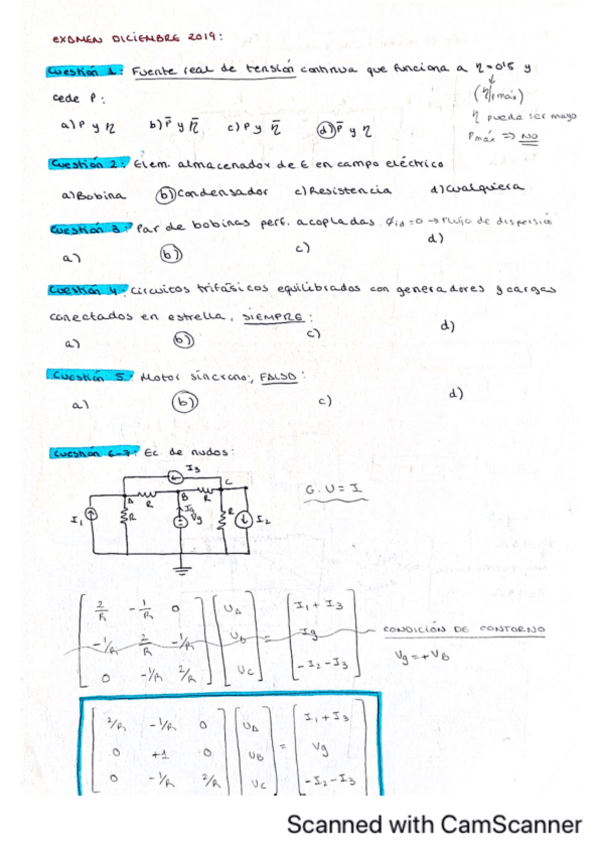 EXAMEN DICIEMBRE 2019:
Cuestión 1: Fuente real de tensión continua que funciona a η=0'5 y
cede P:
(η/Pmáx)
η puede ser mayor
Pmáx => NO
a) P y η b) P̄ y η̄ c) P y η̄ d) P̄ y η
Cuestión 2: Elem. almacenador de E en campo eléctrico
a) Bobina b) Condensador c) Resistencia d) Cualquiera
Cuestión 3: Par de bobinas perf. acopladas. Φid=0 → Flujo de dispersión
a) b) c) d)
Cuestión 4: Circuitos trifásicos equilibrados con generadores y cargas
conectados en estrella, SIEMPRE:
a) b) c) d)
Cuestión 5: Motor síncrono:, FALSO:
a) b) c) d)
Cuestión 6-7: Ec. de nudos:
I3
A R B R C
I1 R Ig Vg R I2
G. U = I
2/R -1/R 0 UA I1+I3
-1/R 2/R -1/R UB = Ig
0 -1/R 2/R UC -I2-I3
CONDICIÓN DE CONTORNO
Vg=+VB
2/R -1/R 0 UA I1+I3
0 +1 0 UB = Vg
0 -1/R 2/R UC -I2-I3
Scanned with CamScanner